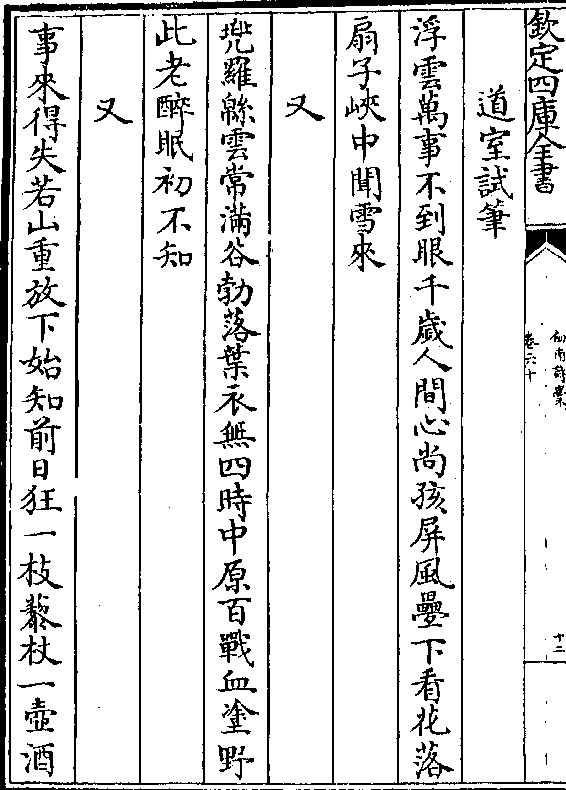 欽定四庫全書
劍南詩藳
卷六十
十二
道室試筆
浮雲萬事不到眼千歲人間心尚孩屏風疊下看花落
扇子峽中聞雪來
又
兠羅緜雲常滿谷勃落葉衣無四時中原百戰血塗野
此老醉眠初不知
又
事來得失若山重放下始知前日狂一枝藜杖一壺酒